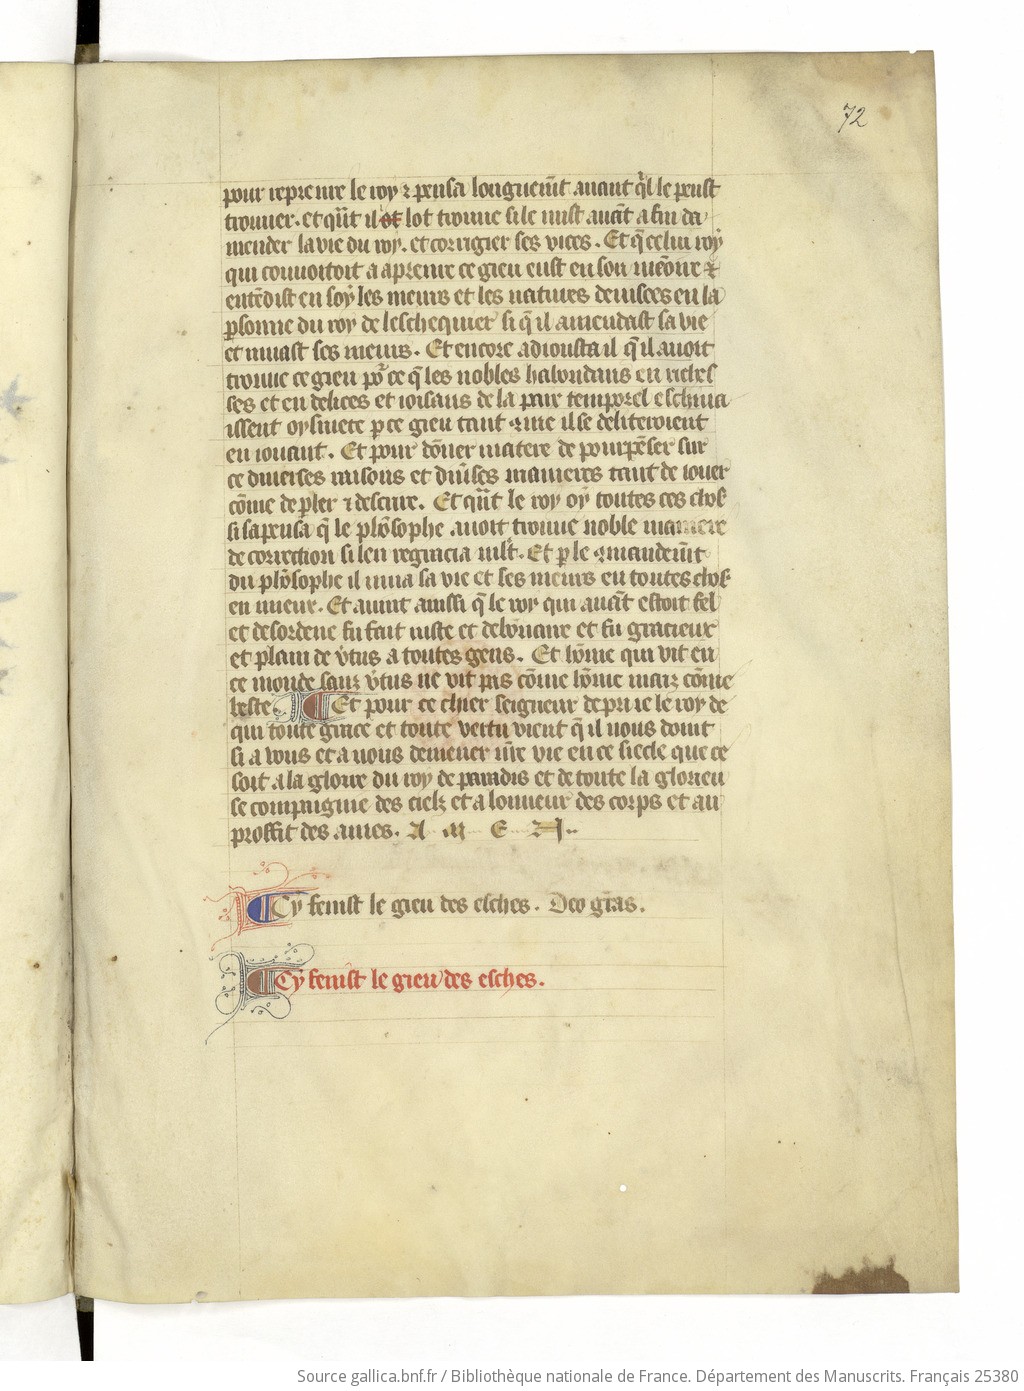 72
pour reprenre le roy ⁊ pensa longuemt̃ auant q̃l le peust
trouuer. et qũt il ot lot trouue si le mist auãt a fin da
mender la vie du roy. et corrigier ses vices. Et q̃ celui roy
qui couuoitoit a aprenre ce gieu eust en son mẽoire ⁊
entẽdist en soy les meurs et les natures deuisees en la
ꝑsonne du roy de leschequier si q̃ il amendast sa vie
et muast ses meurs. Et encore adiousta il q̃ il auoit
trouue ce gieu po͛ ce q̃ les nobles habondans en riches
ses et en delices et ioisans de la paix temporel eschiua
issent oysiuete ꝑ ce gieu tant que il se deliteroient
en iouant. Et pour dõner matere de pourpẽser sur
ce diuerses raisons et diũses manieres tant de iouer
cõme de ꝑler ⁊ descrire. Et qũt le roy oy toutes ces chos̃
si sapensa q̃ le phỹlosophe auoit trouue noble maniere
de correction si len regracia mlt̃. Et ꝑ le amandemt̃
du phỹlosophe il mua sa vie et ses meurs en toutes chos̃
en mieux. Et auint aussi q̃ le roy qui auãt estoit fel
et desordene fu fait iuste et debõnaire et fu gracieux
et plain de ṽtus a toutes gens. Et hõme qui vit en
ce monde sanz ṽtus ne vit pas cõme hõme maiz cõme
beste Et pour ce chier seigneur depri ie le roy de
qui toute grace et toute vertu vient q̃ il nous doint
si a vous et a nous demener nr̃e vie en ce siecle que ce
soit a la gloire du roy de paradis et de toute la glorieu
se compaignie des cielz et a lonneur des corps et au
proffit des ames. A M E N..
Cy fenist le gieu des esches. Deo gr̃as.
Cy fenist le gieu des esches.
Source gallica.bnf.fr / Bibliothèque nationale de France. Département des Manuscrits. Français 25380